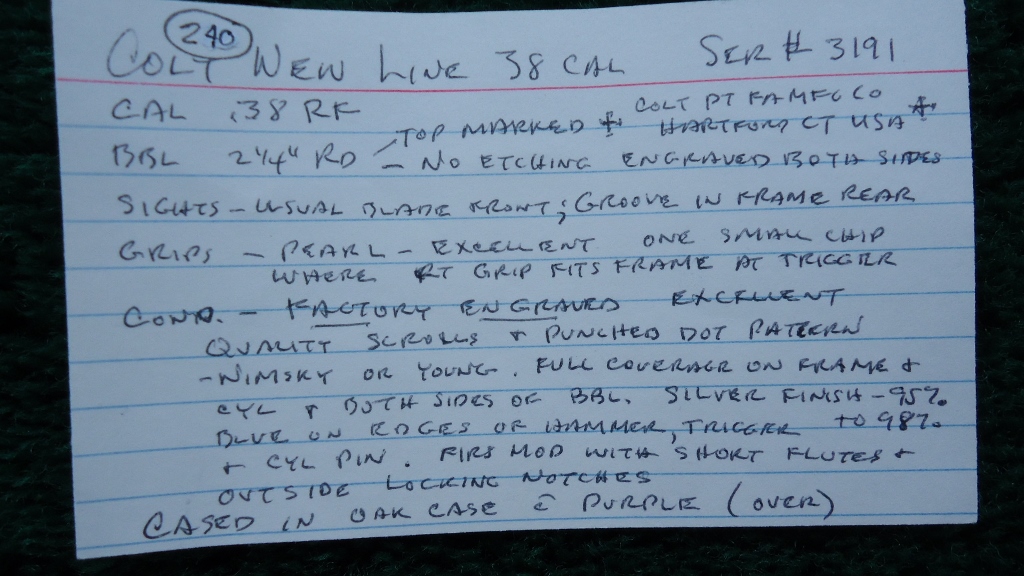 240
COLT NEW LINE 38 CAL SER # 3191
CAL .38 RF COLT PT FA MFG CO
BBL 2 1/4" RD TOP MARKED HARTFORD CT USA
- NO ETCHING ENGRAVED BOTH SIDES
SIGHTS - USUAL BLADE FRONT; GROOVE IN FRAME REAR
GRIPS - PEARL - EXCELLENT ONE SMALL CHIP
WHERE RT GRIP FITS FRAME AT TRIGGER
COND. - FACTORY ENGRAVED EXCELLENT
QUALITY SCROLLS & PUNCHED DOT PATTERN
- NIMSKY OR YOUNG. FULL COVERAGE ON FRAME &
CYL & BOTH SIDES OF BBL. SILVER FINISH - 95%
BLUE ON EDGES OF HAMMER, TRIGGER TO 98%
& CYL PIN. FIRS MOD WITH SHORT FLUTES &
OUTSIDE LOCKING NOTCHES
CASED IN OAK CASE c̄ PURPLE (OVER)